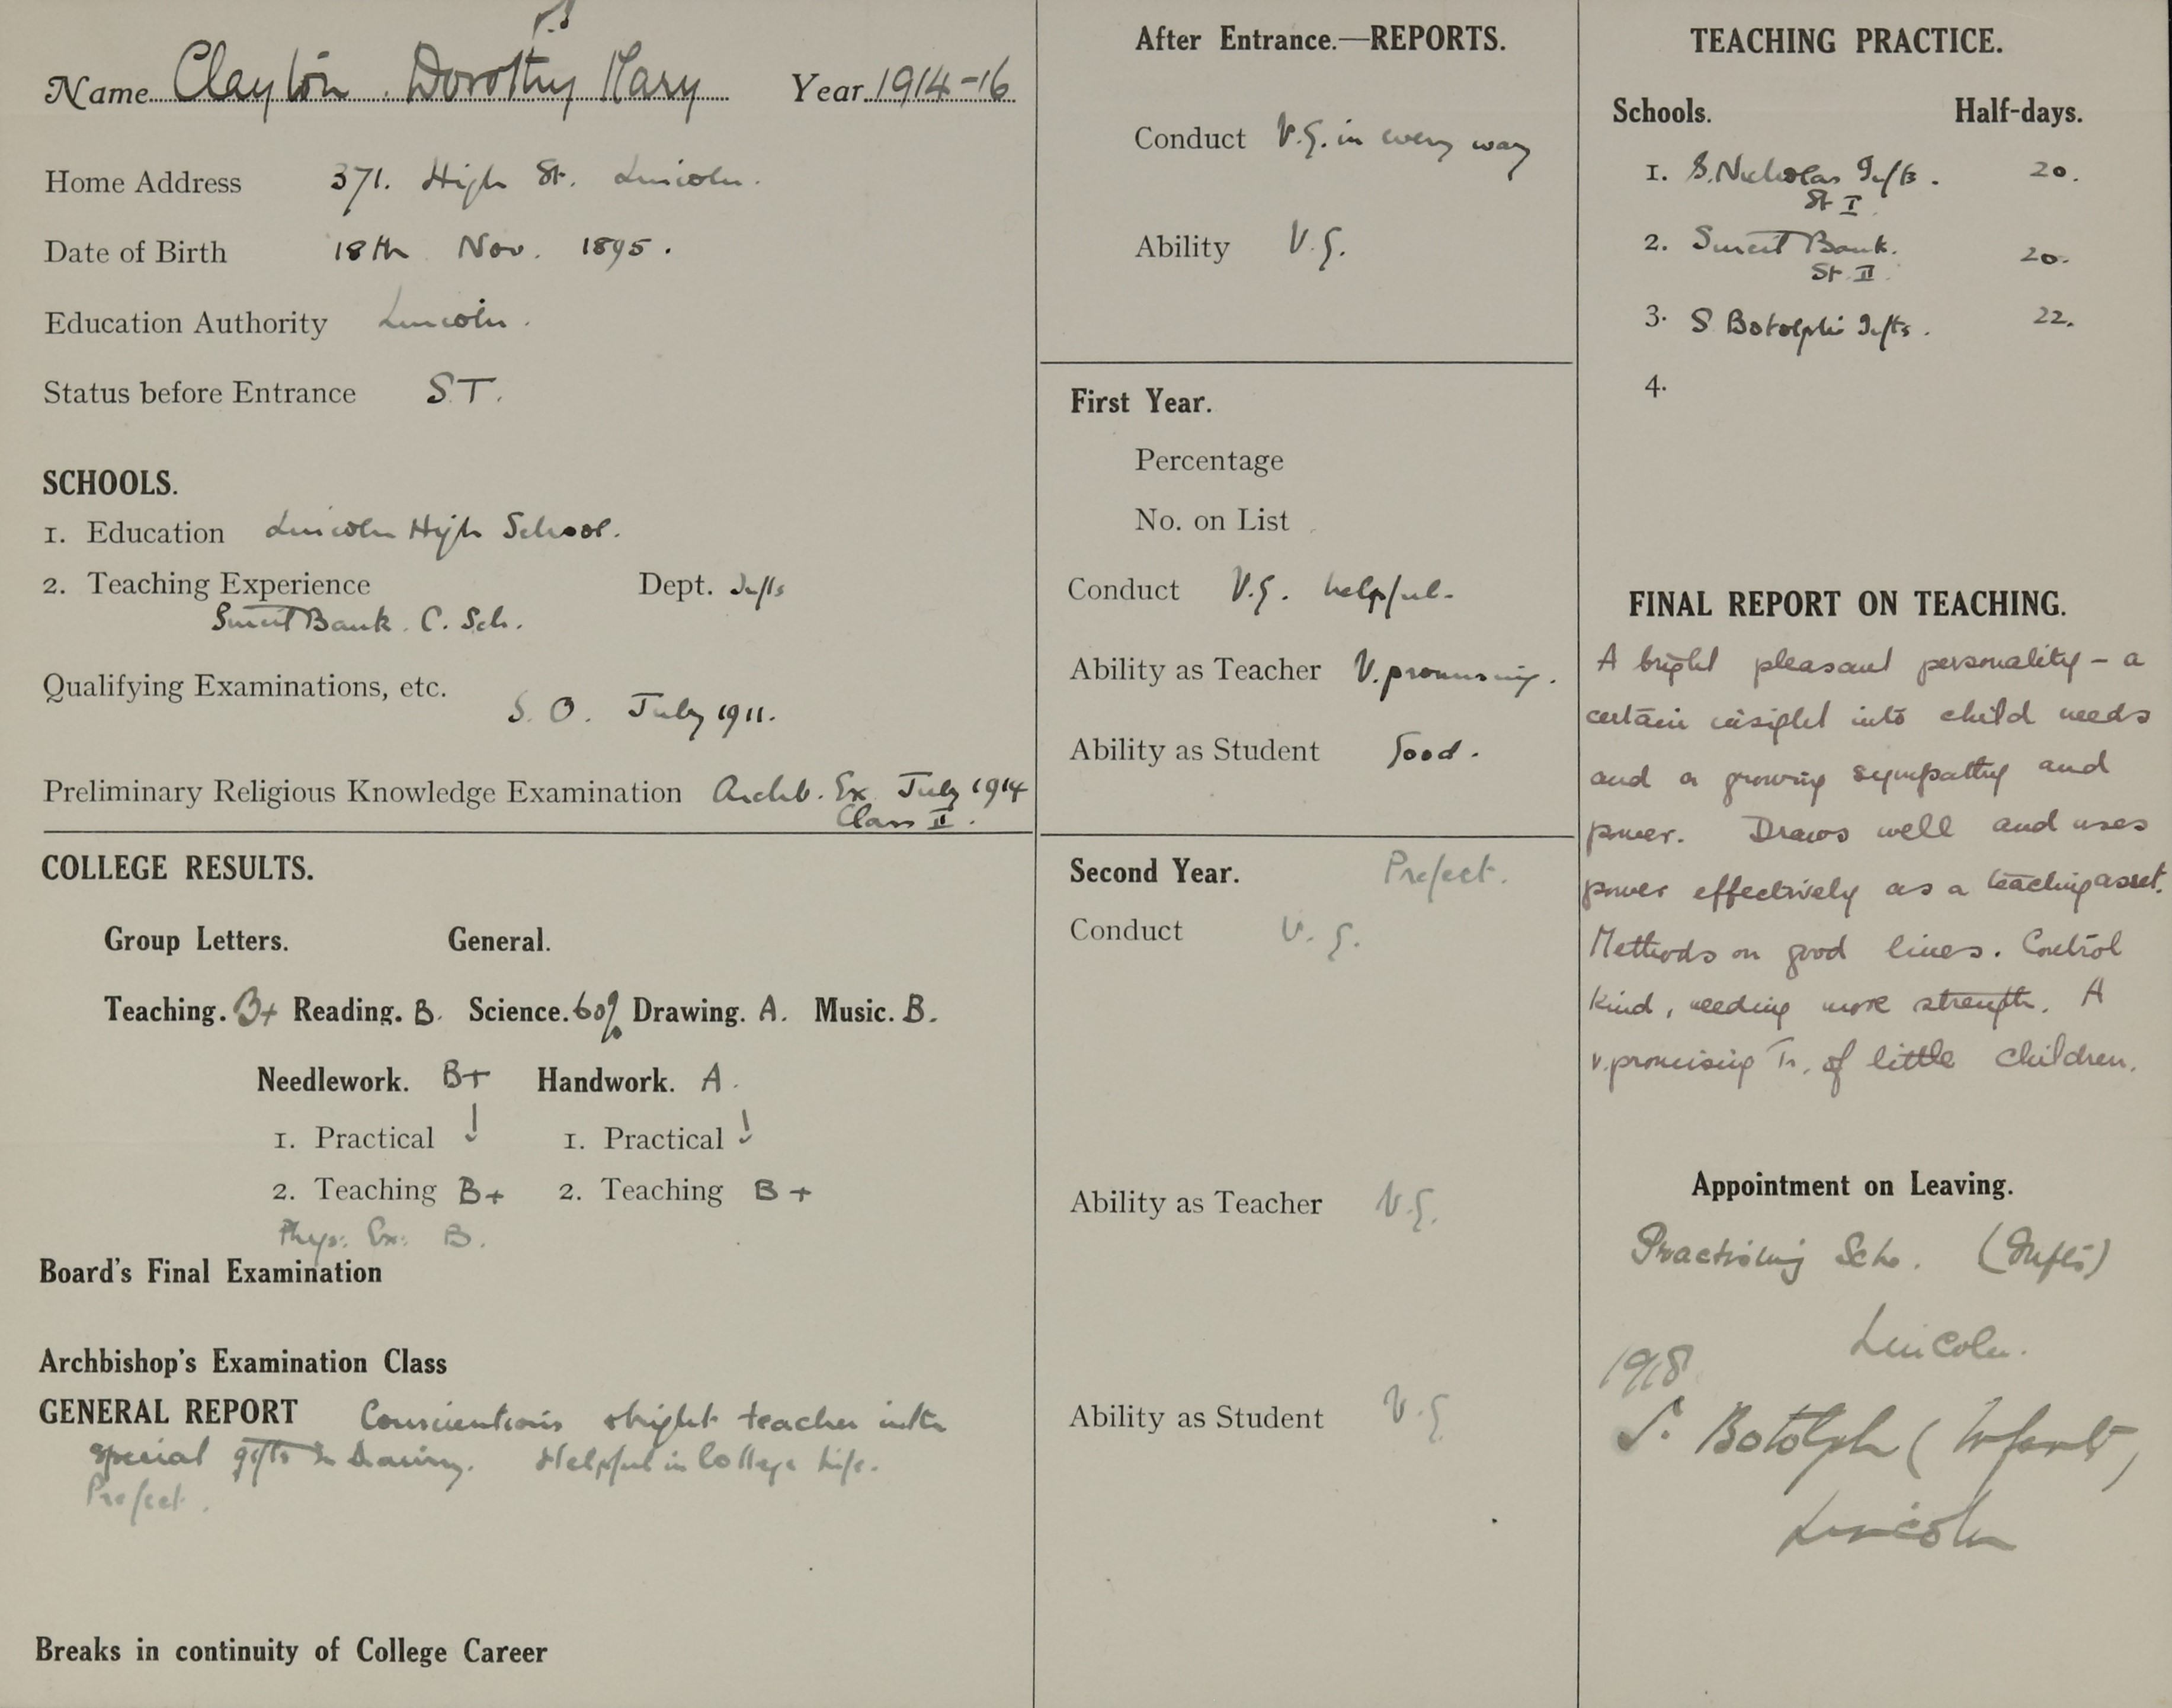 Name Clayton . Dorothy Mary Year 1914-16
Home Address 371. High St. Lincoln.
Date of Birth 18th Nov. 1895.
Education Authority Lincoln.
Status before Entrance S.T.
SCHOOLS.
1. Education Lincoln High School.
2. Teaching Experience Dept. Infts
Sincil Bank. C. Sch.
Qualifying Examinations, etc.
S. O. July 1911.
Preliminary Religious Knowledge Examination Archb. Ex July 1914
Class II.
COLLEGE RESULTS.
Group Letters. General.
Teaching. B+ Reading. B. Science. 60% Drawing. A. Music. B.
Needlework. B+ Handwork. A.
1. Practical 1. Practical
2. Teaching B+ 2. Teaching B+
Phys: Ex: B.
Board's Final Examination
Archbishop's Examination Class
GENERAL REPORT Conscientious bright teacher with
special gifts in Drawing. Helpful in College life.
Prefect.
Breaks in continuity of College Career
After Entrance.—REPORTS.
Conduct V.G. in every way
Ability V.G.
First Year.
Percentage
No. on List
Conduct V.G. helpful.
Ability as Teacher V. promising.
Ability as Student Good.
Second Year. Prefect.
Conduct V.G.
Ability as Teacher V.G.
Ability as Student V.G
TEACHING PRACTICE.
Schools. Half-days.
1. S. Nicholas Infts. 20.
St I.
2. Sincil Bank. 20.
St. II.
3. S Botolphs Infts. 22.
4.
FINAL REPORT ON TEACHING.
A bright pleasant personality - a
certain insight into child needs
and a growing sympathy and
power. Draws well and uses
power effectively as a teaching asset.
Methods on good lines. Control
kind, needing more strength. A
v. promising Tr. of little children.
Appointment on Leaving.
Practising Sch. (Infts)
Lincoln.
1918
S. Botolph (Infants)
Lincoln